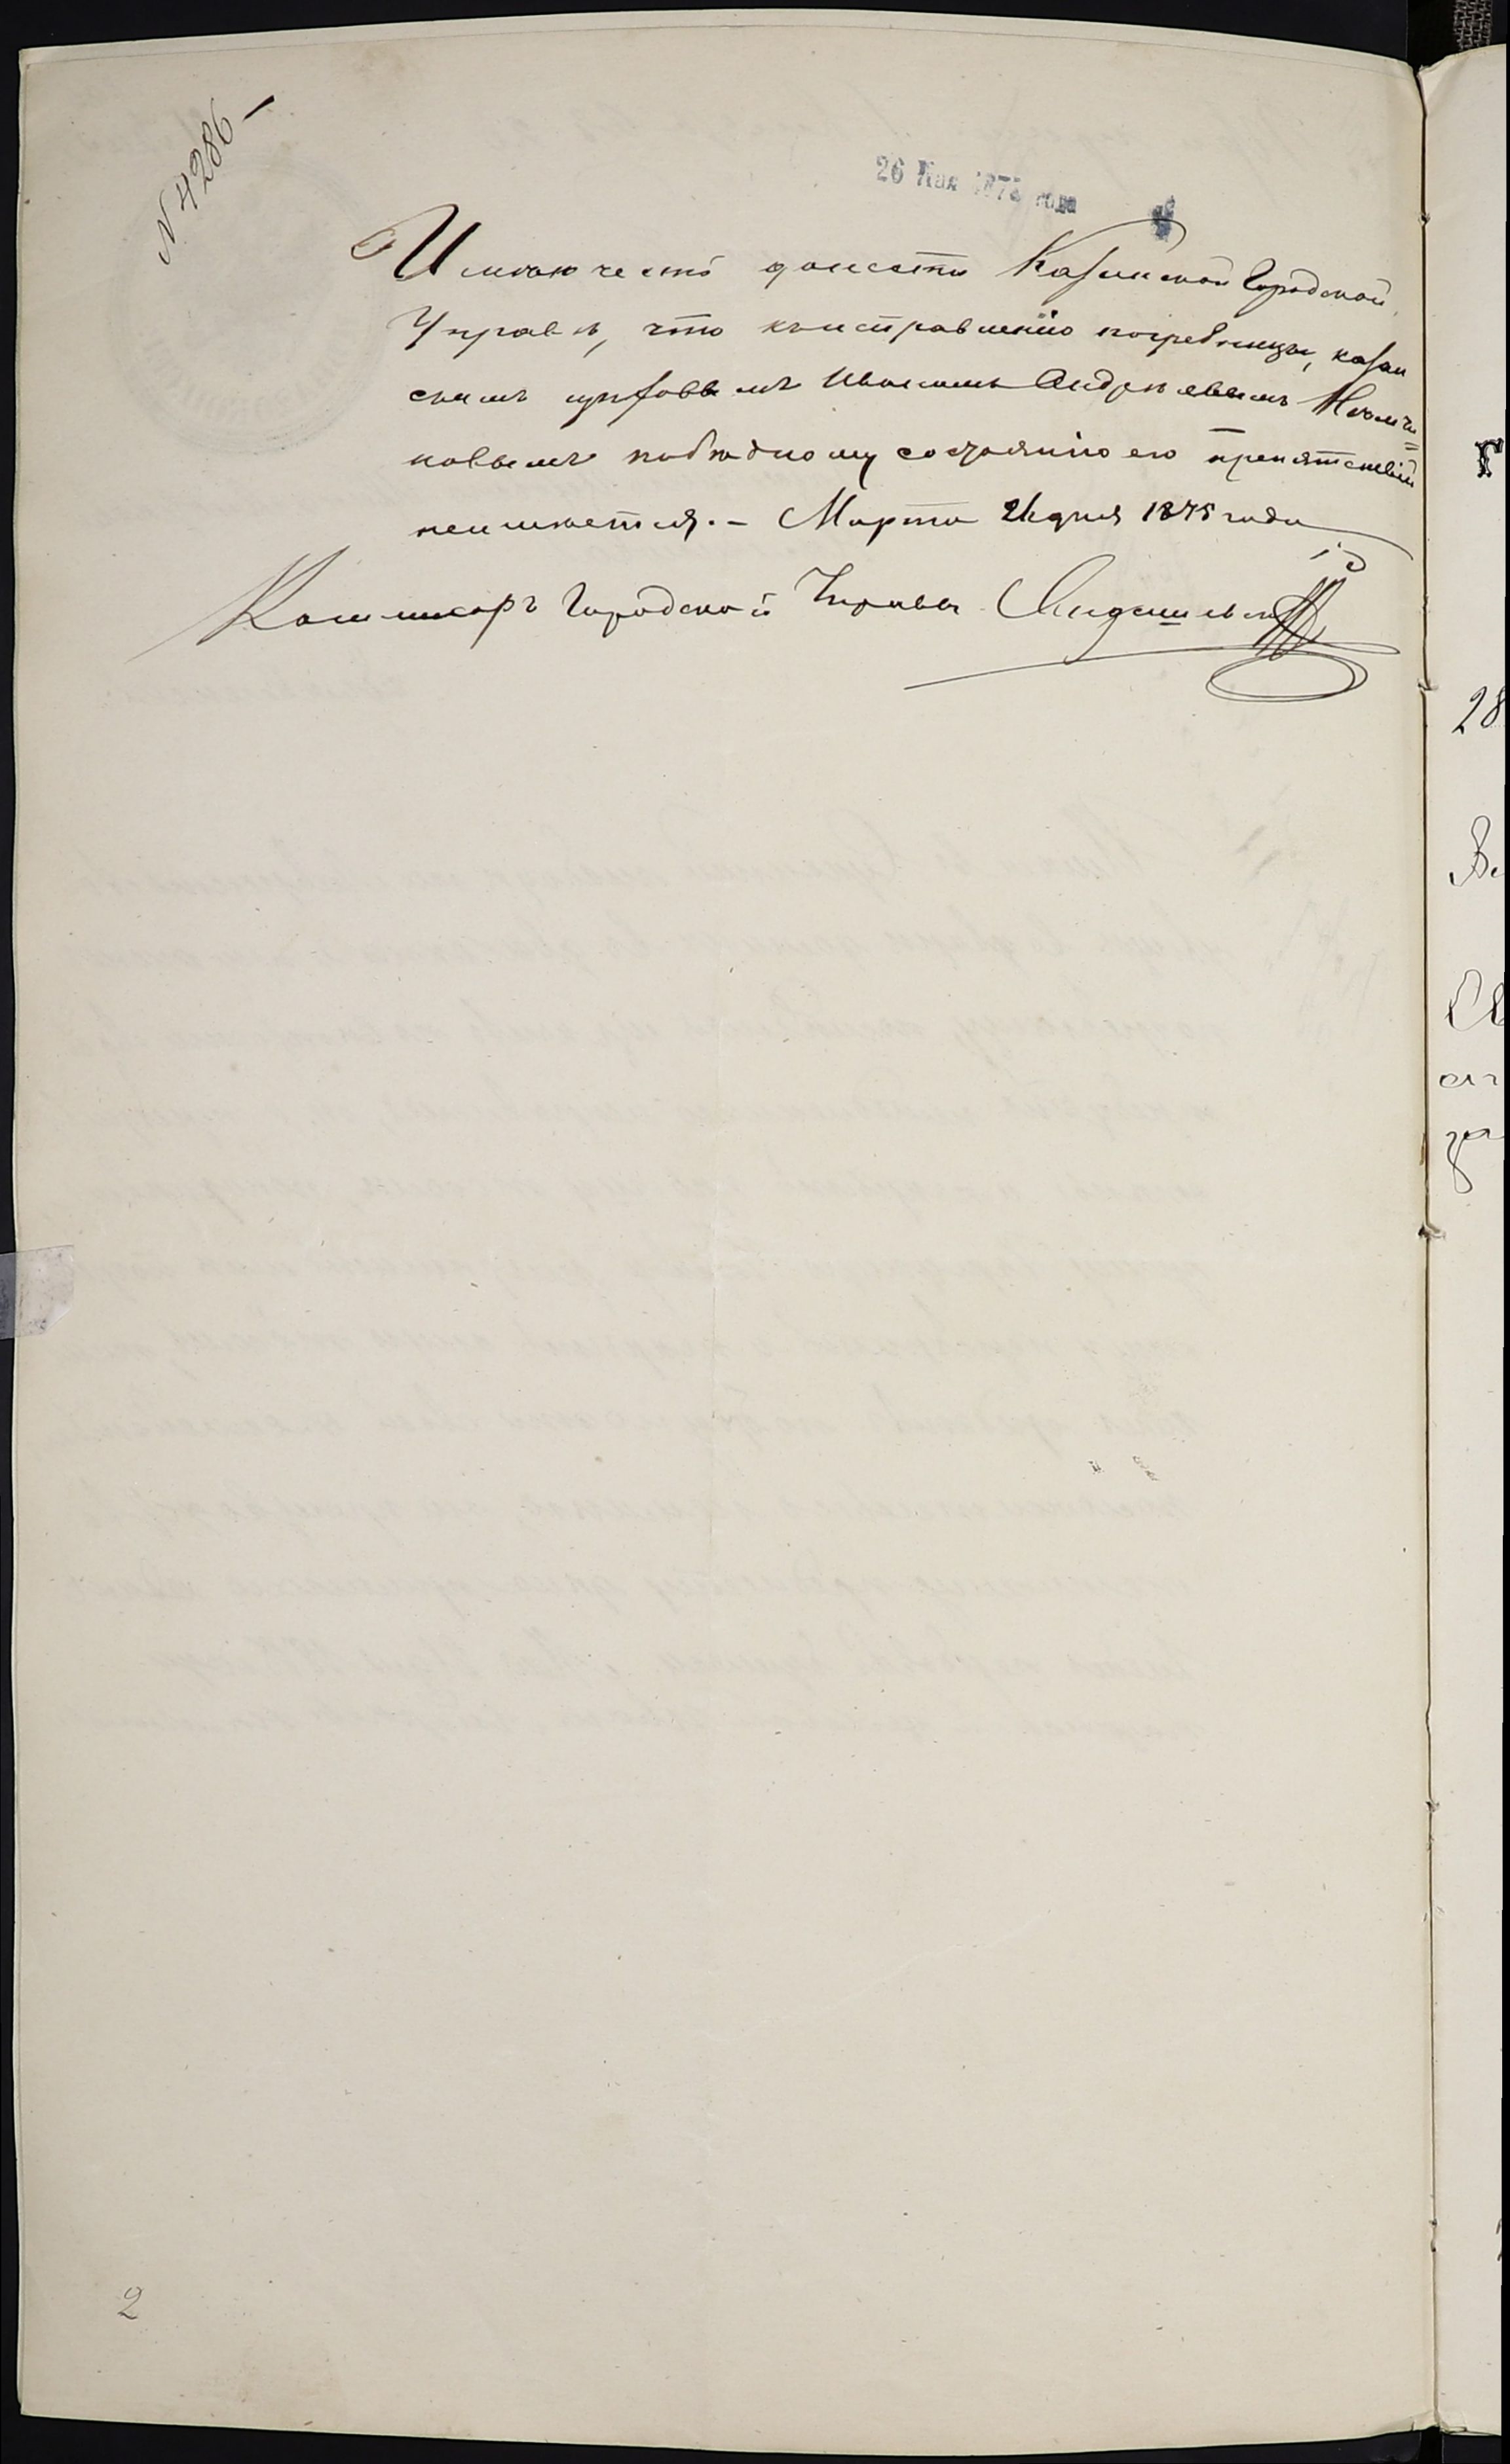 № 4286
26 Мая 187 года
Имѣю честь донести Казанской Городской
Управѣ, что къ исправленію погребницы, казан
скимъ цеховымъ Иваномъ Андреевымъ
ковымъ по бѣдному состоянію его препятствій
неимѣется. – Марта 26 дня 1875 года
Коммисаръ Городской Управы
2